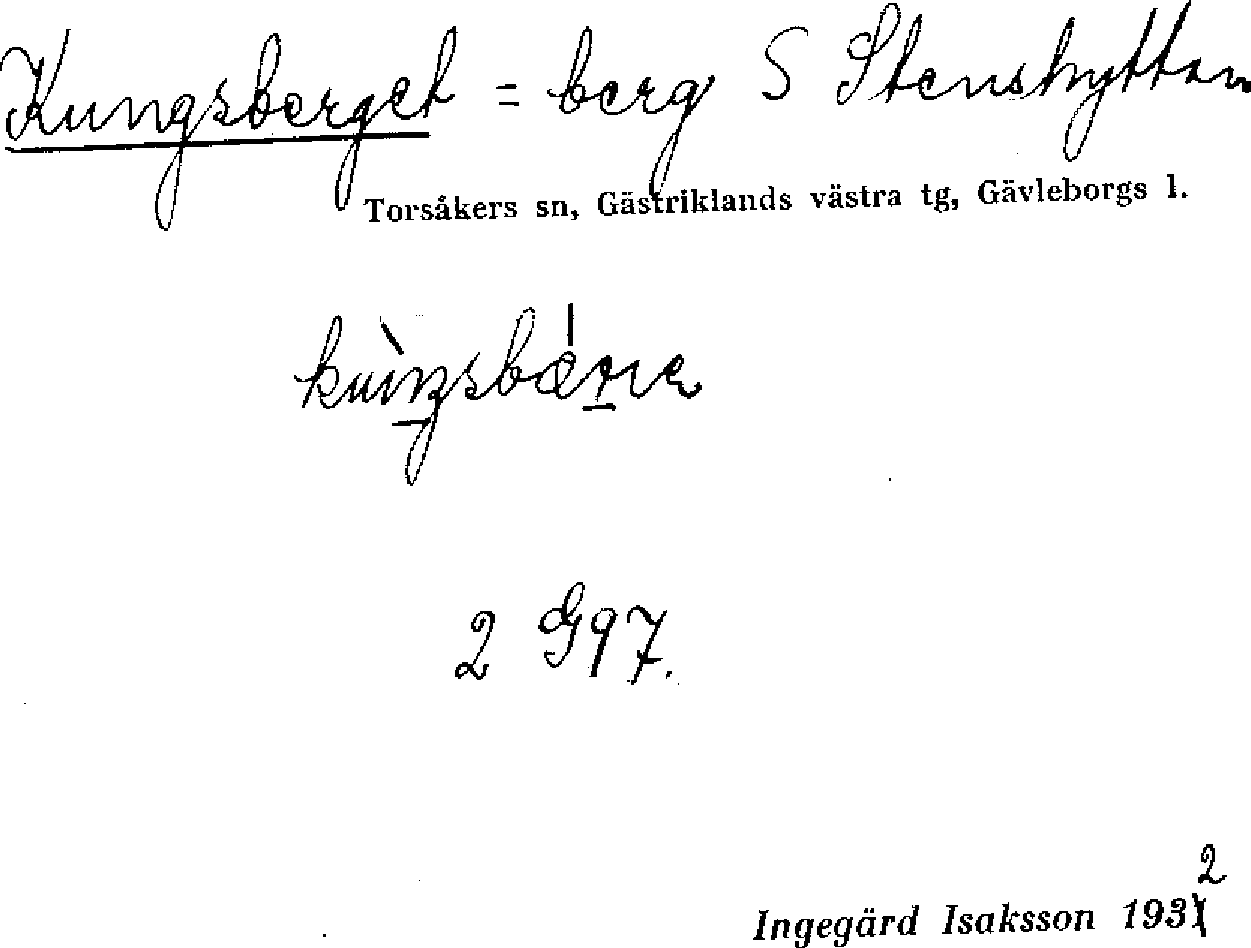 Kungsberget = berg S Stenshyttan
Torsåkers sn, Gästriklands västra tg, Gävleborgs l.
2 G97.
Ingegärd Isaksson 1932